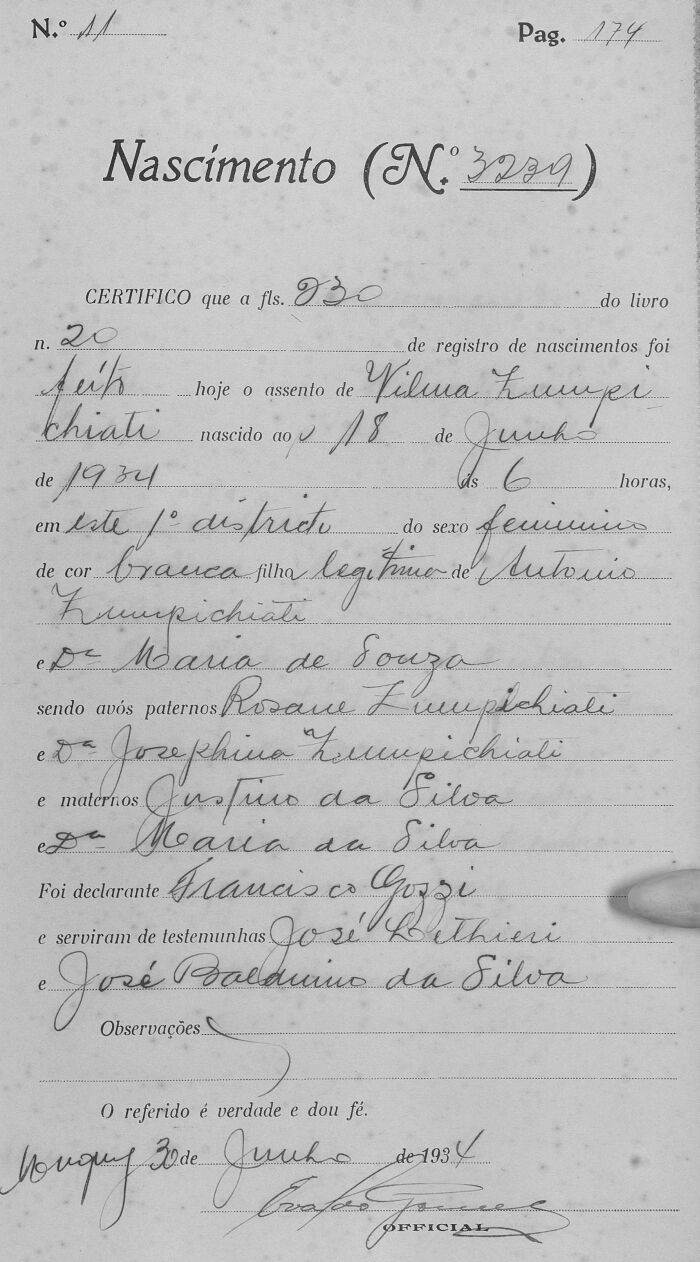 N.º 11 Pag. 174
Nascimento (N.º 3239)
CERTIFICO que a fls. 230 do livro
n. 20 de registro de nascimentos foi
feito hoje o assento de Vilma Zumpi-
chiati nascido ao 18 de Junho
de 1934 ás 6 horas,
em este 1º districto do sexo feminino
de cor branca filha legitima de Antonio
Zumpichiati
e Dª Maria de Souza
sendo avós paternos Rosane Zumpichiati
e Dª Josephina Zumpichiati
e maternos Justino da Silva
e Dª Maria da Silva
Foi declarante Francisco Gozzi
e serviram de testemunhas José Lethieri
e José Balduino da Silva
Observações
O referido é verdade e dou fé.
30 de Junho de 1934
OFFICIAL